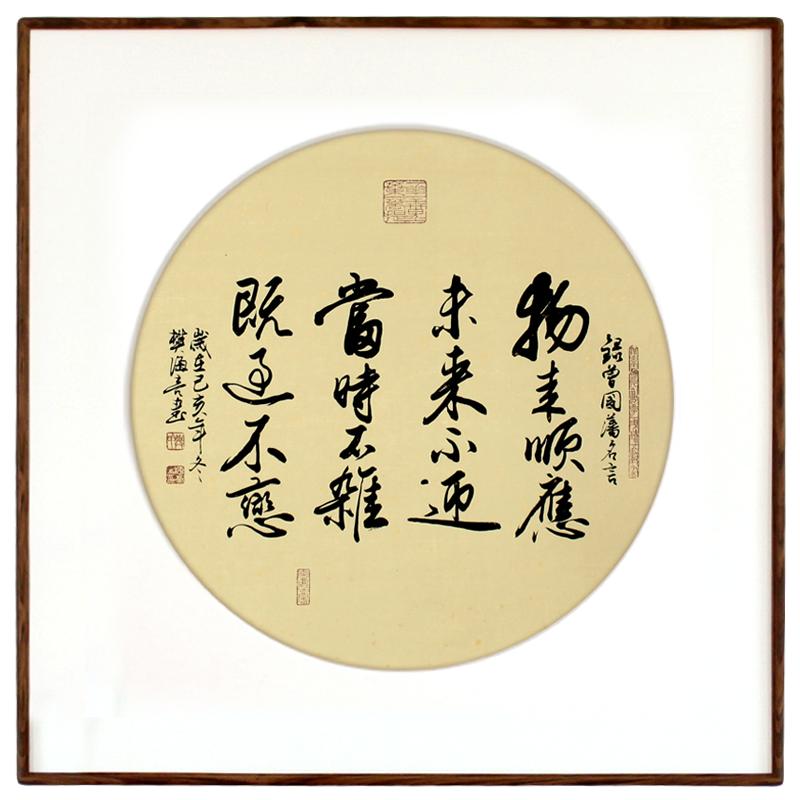 錄曾國藩名言
物来順應
未来不迎
當時不雜
既過不戀
歲在己亥年冬
樊海書